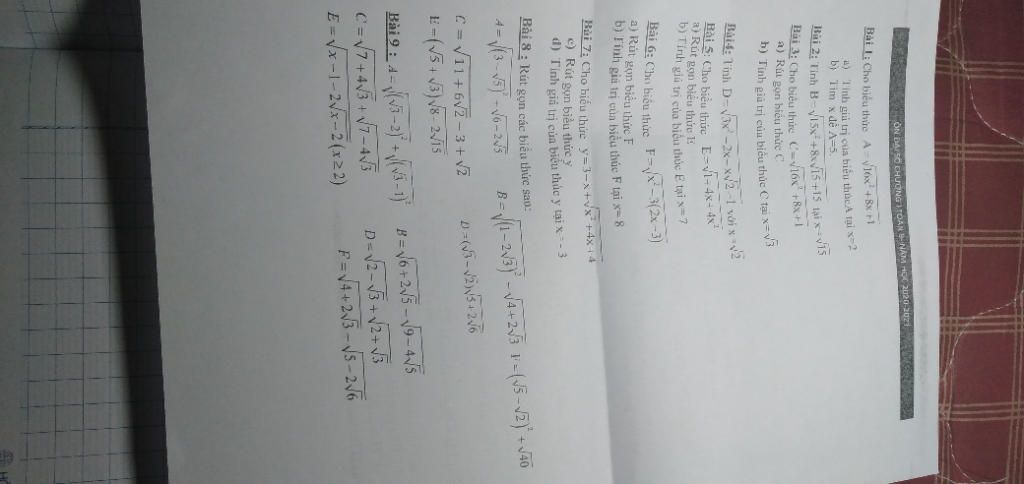 ÔN ĐẠI SỐ CHƯƠNG I TOÁN 9- NĂM HỌC 2020-2021
Bài 1: Cho biểu thức A = √(16x² + 8x + 1)
a) Tính giá trị của biểu thức A tại x=2
b) Tìm x để A=5.
Bài 2: Tính B = √(15x² + 8x√15 + 15) tại x = √15
Bài 3: Cho biểu thức C = √(16x² + 8x + 1)
a) Rút gọn biểu thức C
b) Tính giá trị của biểu thức C tại x = √3
Bài4: Tính D = √(3x² − 2x − x√2 − 1) với x = √2
Bài 5: Cho biểu thức E = √(1 + 4x + 4x²)
a) Rút gọn biểu thức E
b) Tính giá trị của biểu thức E tại x = 7
Bài 6: Cho biểu thức F = √(x² − 3(2x − 3))
a) Rút gọn biểu thức F
b) Tính giá trị của biểu thức F tại x= 8
Bài 7: Cho biểu thức y = 3 − x + √(x² + 4x + 4)
c) Rút gọn biểu thức y
d) Tính giá trị của biểu thức y tại x = - 3
Bài 8 : Rút gọn các biểu thức sau:
A = √((3 − √5)²) + √(6 − 2√5) B = √((1 − 2√3)²) − √(4 + 2√3) F = (√5 − √2)² + √40
C = √(11 + 6√2) − 3 + √2 D = (√3 − √2)√(5 + 2√6)
E = (√5 + √3)√(8 − 2√15)
Bài 9 : A = √((√3 − 2)²) + √((√3 − 1)²) B = √(6 + 2√5) − √(9 − 4√5)
C = √(7 + 4√3) + √(7 − 4√3) D = √(2 − √3) + √(2 + √3)
E = √(x − 1 − 2√(x − 2)) (x ≥ 2) F = √(4 + 2√3) − √(5 − 2√6)